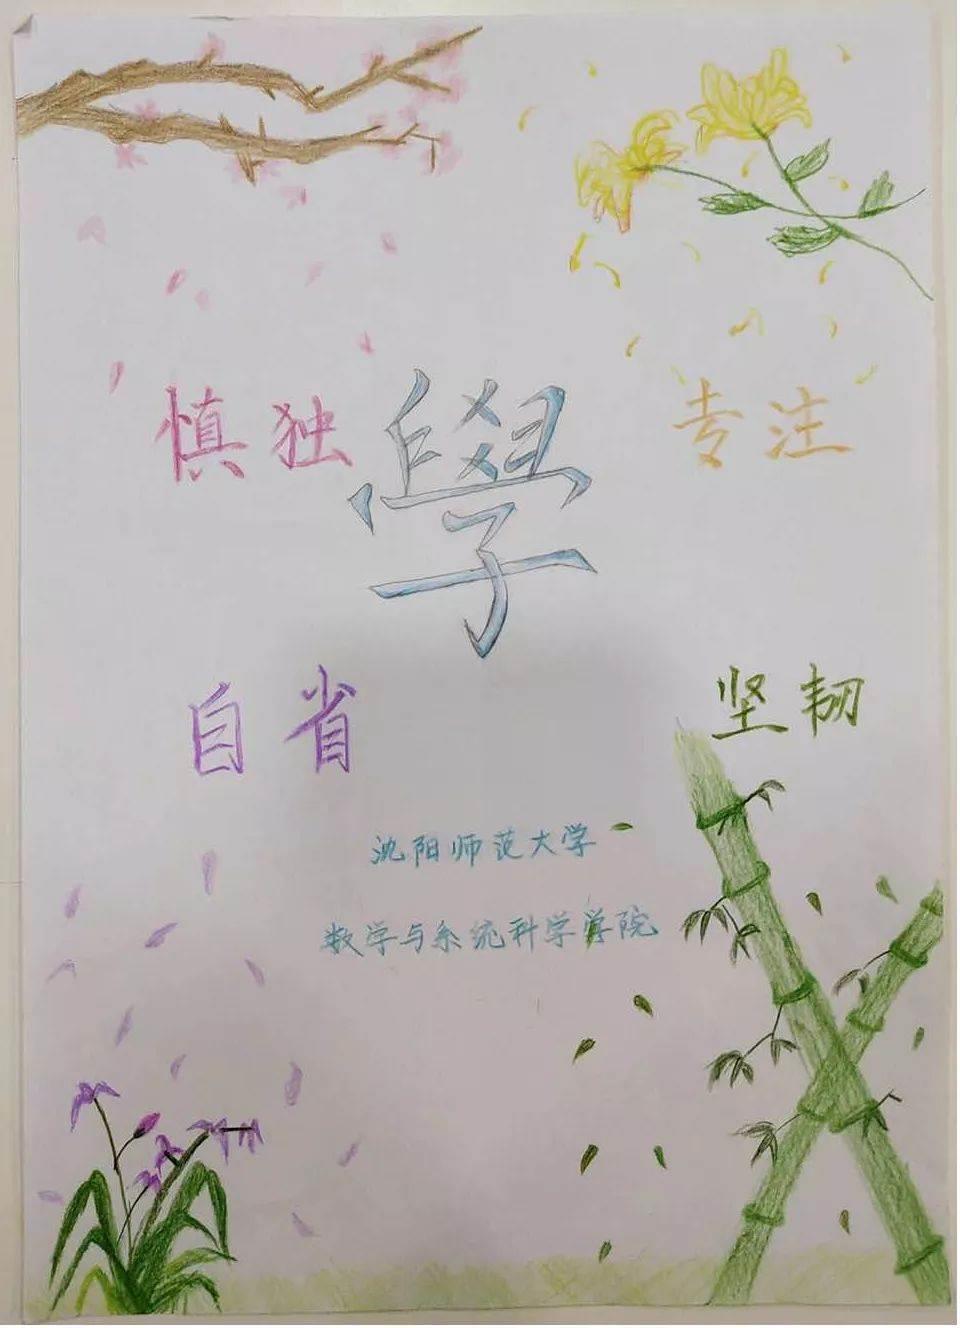 慎独
學
专注
自省
坚韧
沈阳师范大学
数学与系统科学学院